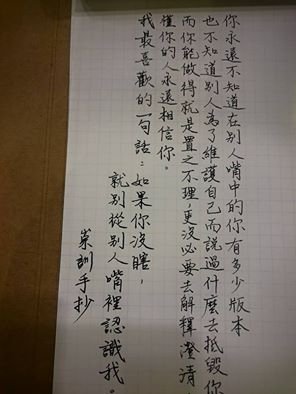 你永遠不知道在別人嘴中的你有多少版本
也不知道別人為了維護自己而說過什麼去抵毀你
而你能做得就是置之不理，更沒必要去解釋澄清，
懂你的人永遠相信你。
我最喜歡的一句話：如果你沒瞎，
就別從別人嘴裡認識我。
崇訓手抄